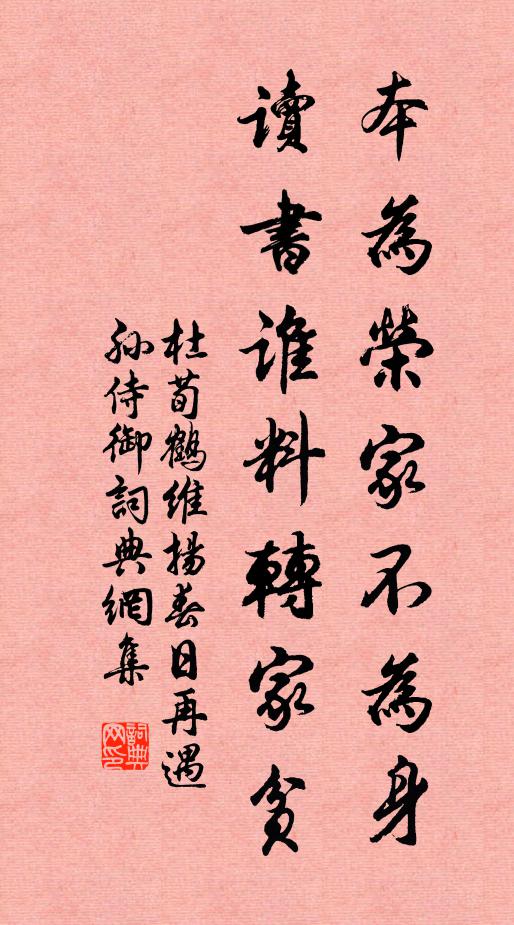 本為榮家不為身
讀書誰料轉家貧
杜荀鶴維揚春日再遇
孫侍御詞典網集
詞典
网印